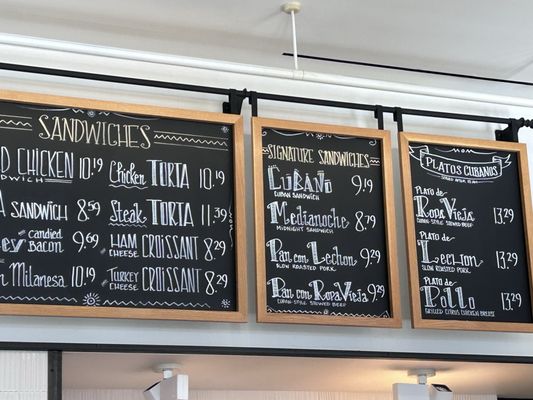 SANDWICHES
CHICKEN 10.19
SANDWICH
SANDWICH 8.59
candied
BACON 9.69
Milanesa 10.19
Chicken TORTA 10.19
Steak TORTA 11.39
HAM & CHEESE CROISSANT 8.29
TURKEY & CHEESE CROISSANT 8.29
SIGNATURE SANDWICHES
CUBANO 9.19
CUBAN SANDWICH
Medianoche 8.79
MIDNIGHT SANDWICH
Pan con Lechon 9.29
SLOW ROASTED PORK
Pan con Ropa Vieja 9.29
CUBAN-STYLE SHREDDED BEEF
PLATOS CUBANOS
SERVED AFTER 11AM
PLATO DE
Ropa Vieja 13.29
CUBAN-STYLE SHREDDED BEEF
PLATO DE
Lechon 13.29
SLOW ROASTED PORK
PLATO DE
Pollo 13.29
GRILLED CITRUS CHICKEN BREAST